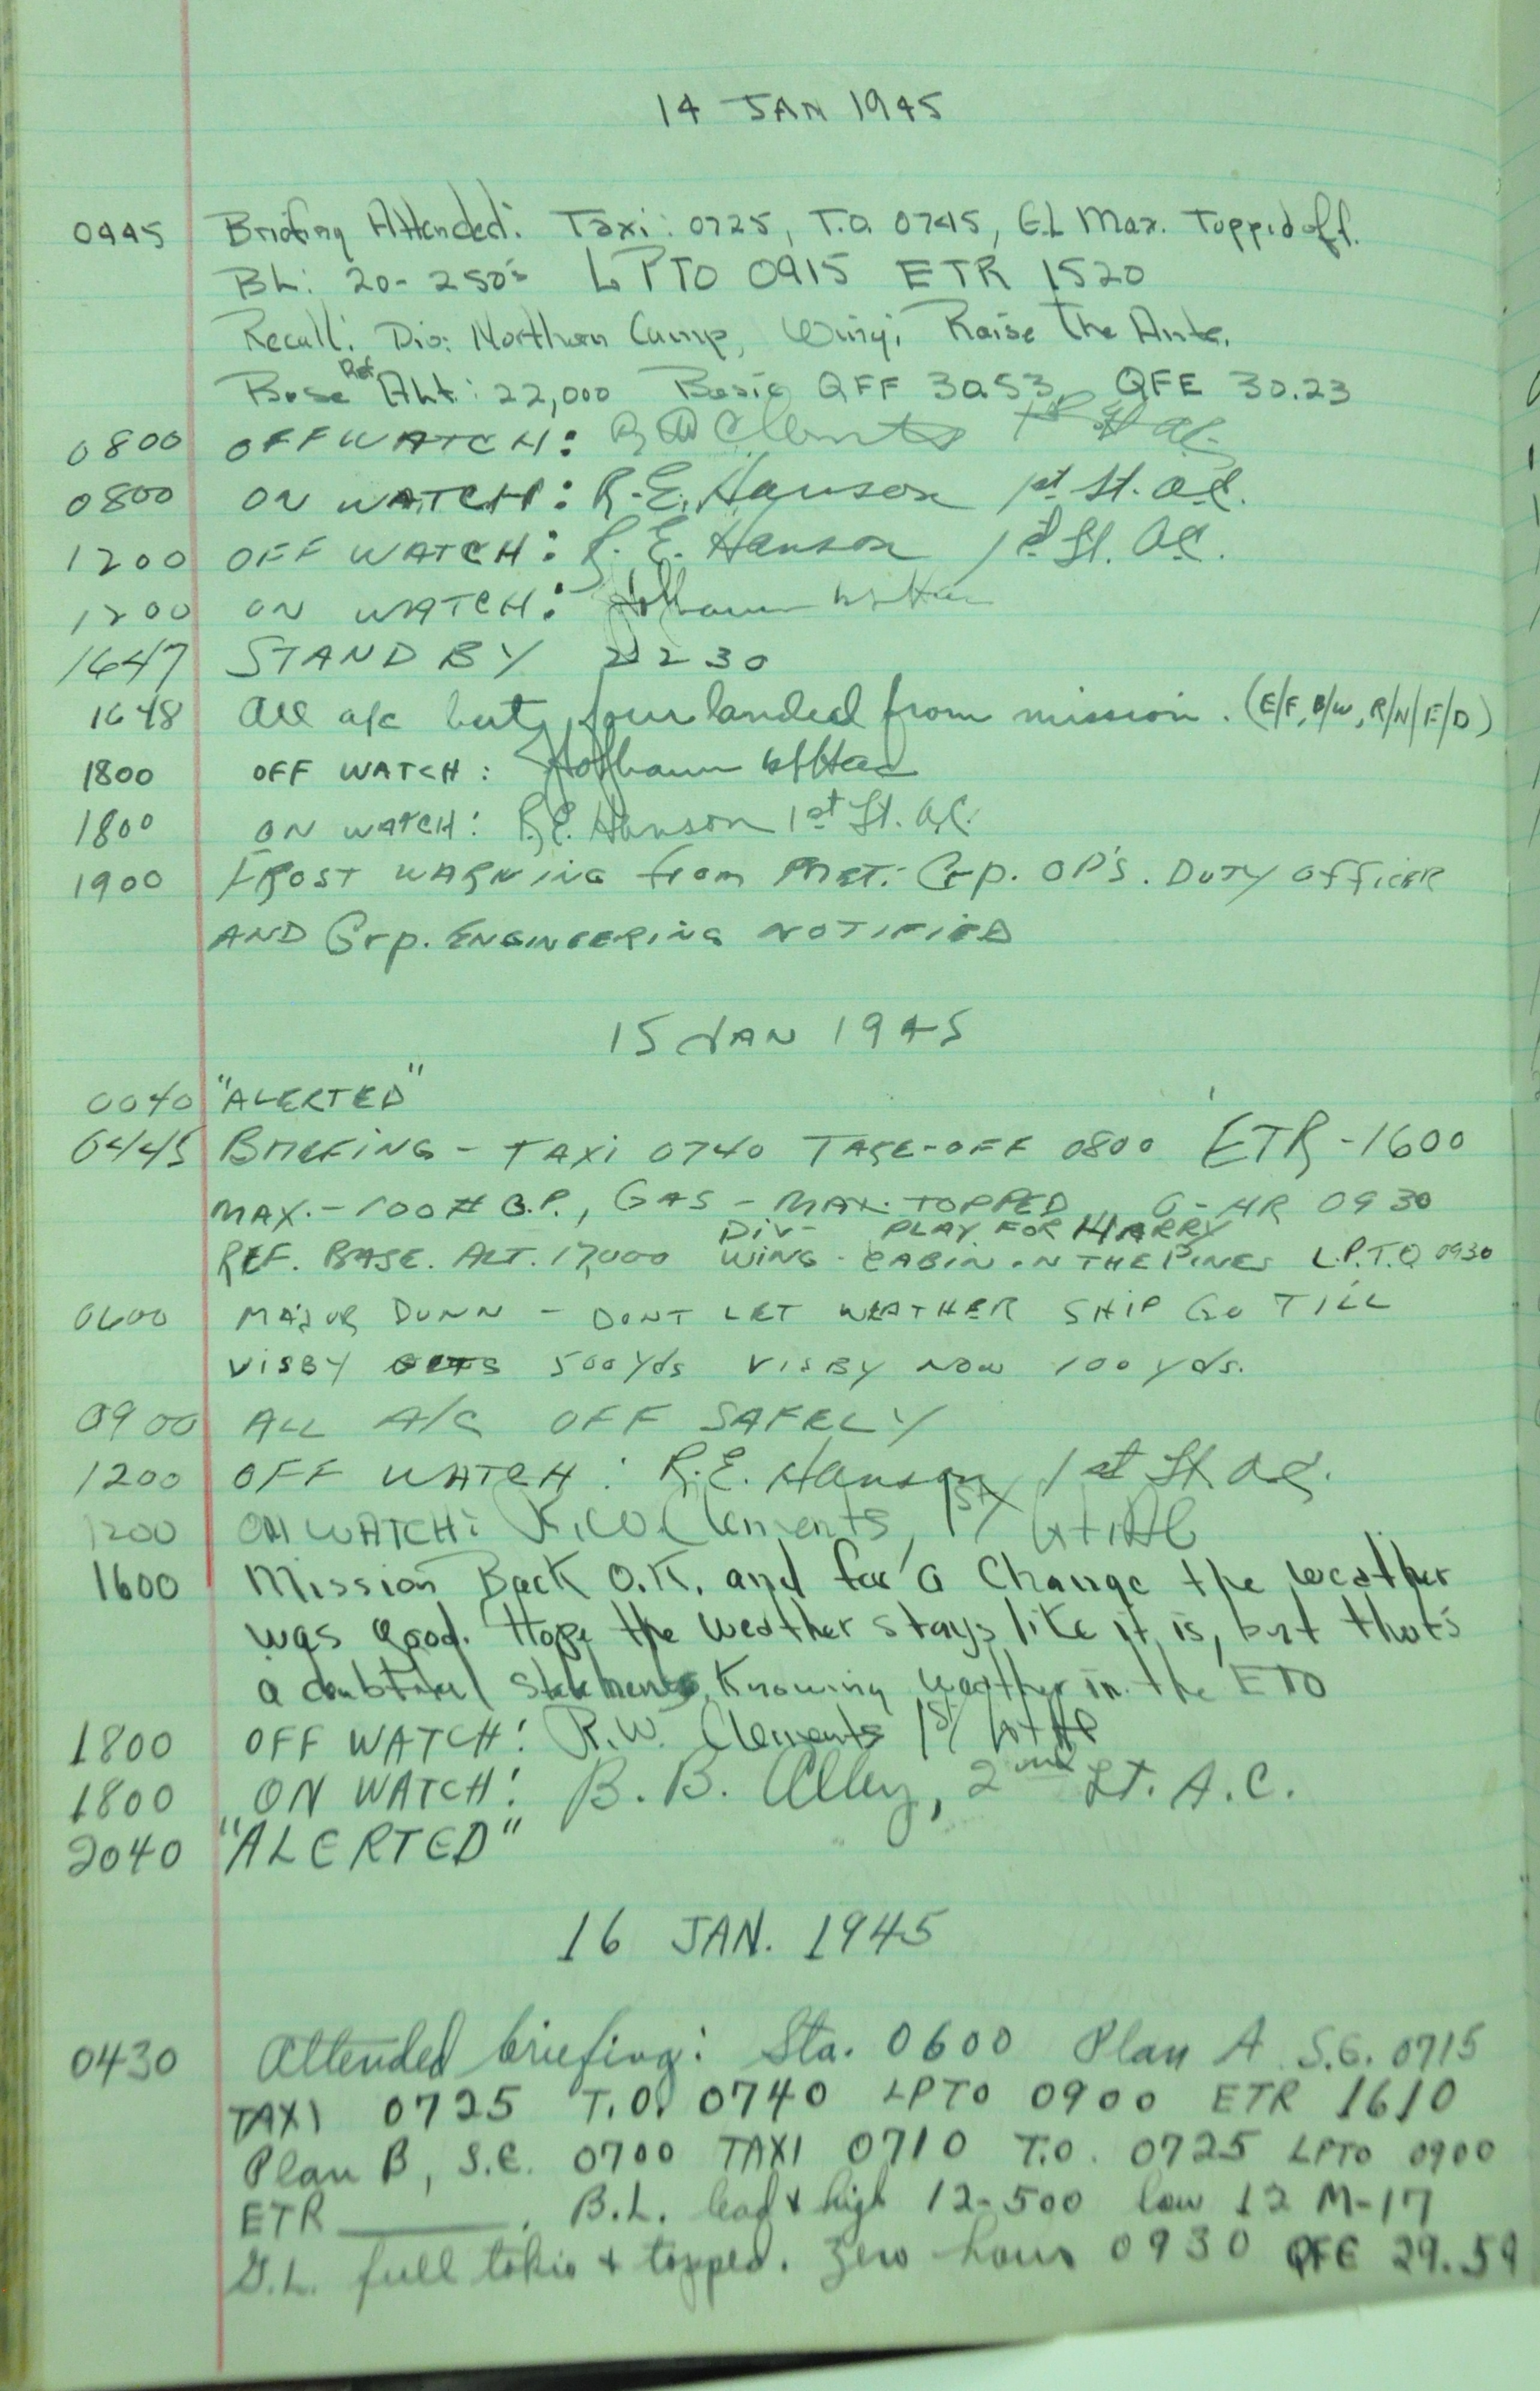 14 JAN 1945
0445 Briefing Attended: Taxi: 0725, T.O. 0745, G.L Max. Topped off.
BL: 20- 250's LPTO 0915 ETR 1520
Recall: Div: Northern Camp, Wing: Raise The Ante.
Base Ref Alt: 22,000 Basic QFF 30.53, QFE 30.23
0800 OFF WATCH: R W Clements 1st Lt AC
0800 ON WATCH: R.E. Hanson 1st Lt. A.C.
1200 OFF WATCH: R. E. Hanson 1st Lt. A.C.
1200 ON WATCH:
1647 STAND BY 2230
1648 All a/c but four landed from mission. (E/F, B/W, R/N/E/D)
1800 OFF WATCH:
1800 ON WATCH: R.E. Hanson 1st Lt. A.C.
1900 FROST WARNING from Met. Grp. OP'S. DUTY OFFICER
AND Grp. ENGINEERING NOTIFIED
15 JAN 1945
0040 "ALERTED"
0445 BRIEFING - TAXI 0740 TAKE-OFF 0800 ETR -1600
MAX. - 100 # G.P., GAS - MAX. TOPPED, O - HR 0930
DIV - PLAY FOR HARRY
REF. BASE. ALT. 17,000 WING - CABIN IN THE PINES L.P.T.O 0930
0600 MAJOR DUNN - DONT LET WEATHER SHIP GO TILL
VISBY GETS 500 Yds VISBY NOW 100 yds.
0900 ALL A/C OFF SAFELY
1200 OFF WATCH: R.E. Hanson 1st Lt AC.
1200 ON WATCH: R.W. Clements, 1st Lt. AC
1600 Mission Back O.K. and for a Change the weather
was good. Hope the weather stays like it is, but that's
a doubtful statement, Knowing weather in the ETO
1800 OFF WATCH: R.W. Clements 1st Lt AC
1800 ON WATCH: B. B. Alley, 2nd LT. A.C.
2040 "ALERTED"
16 JAN. 1945
0430 Attended briefing: Sta. 0600 Plan A S.E. 0715
TAXI 0725 T.O. 0740 LPTO 0900 ETR 1610
Plan B, S.E. 0700 TAXI 0710 T.O. 0725 LPTO 0900
ETR ______. B.L. lead & high 12-500 low 12 M-17
G.L. full tokio & topped. Zero hour 0930 QFE 29.59